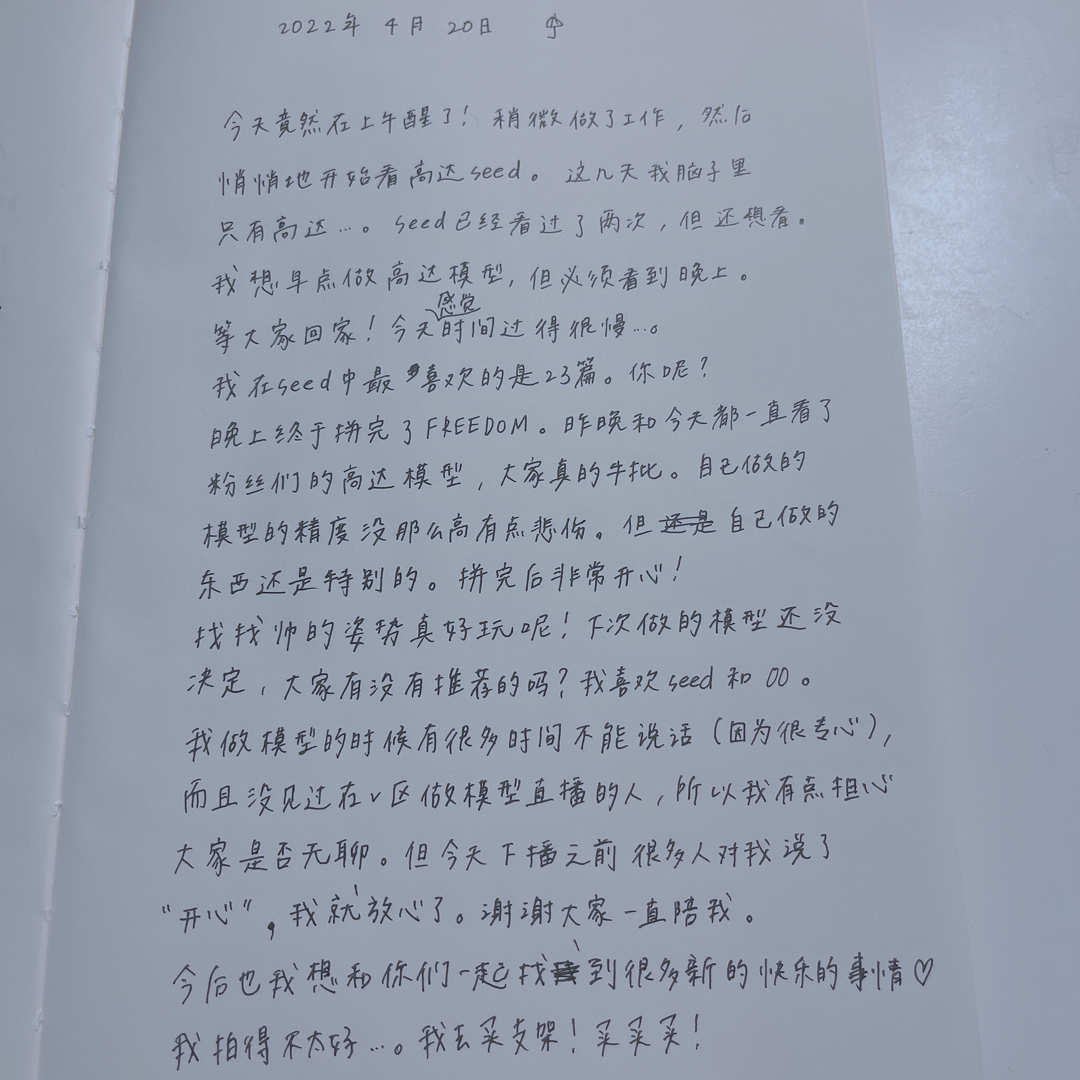 2022年 4月 20日 ☂
今天竟然在上午醒了！稍微做了工作，然后
悄悄地开始看高达seed。这几天我脑子里
只有高达…。seed已经看过了两次，但还想看。
我想早点做高达模型，但必须看到晚上。
等大家回家！今天感觉时间过得很慢…。
我在seed中最喜欢的是23篇。你呢？
晚上终于拼完了FREEDOM。昨晚和今天都一直看了
粉丝们的高达模型，大家真的牛批。自己做的
模型的精度没那么高有点悲伤。但自己做的
东西还是特别的。拼完后非常开心！
找找帅的姿势真好玩呢！下次做的模型还没
决定，大家有没有推荐的吗？我喜欢seed和00。
我做模型的时候有很多时间不能说话（因为很专心），
而且没见过在v区做模型直播的人，所以我有点担心
大家是否无聊。但今天下播之前很多人对我说了
“开心”，我就放心了。谢谢大家一直陪我。
今后也我想和你们一起找到很多新的快乐的事情♡
我拍得不太好…。我去买支架！买买买！